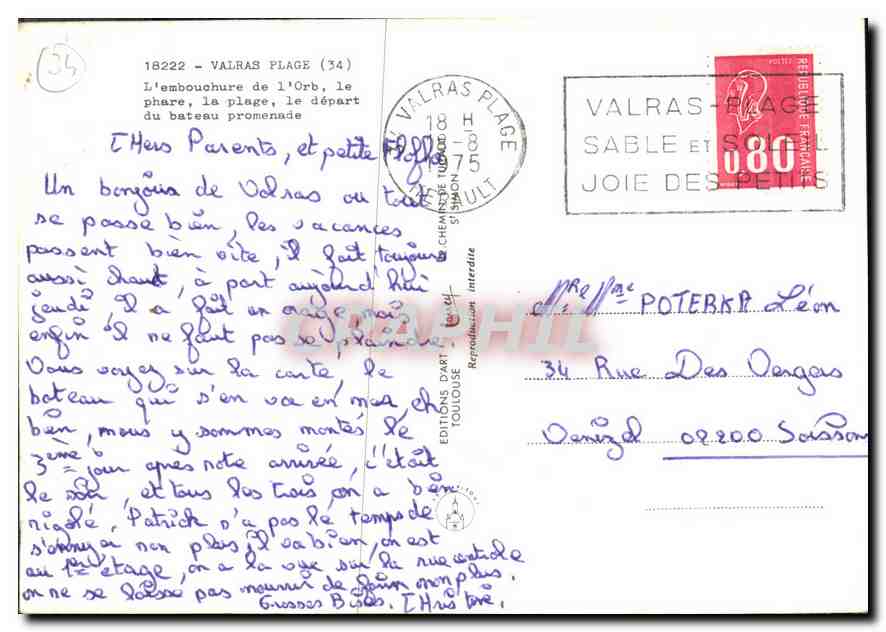 34
18222 - VALRAS PLAGE (34)
L'embouchure de l'Orb, le
phare, la plage, le départ
du bateau promenade
VALRAS PLAGE
18 H
-8
1975
HERAULT
VALRAS-PLAGE
SABLE ET SOLEIL
JOIE DES PETITS
POSTES
REPUBLIQUE FRANÇAISE
0,80
Chers Parents, et petite
Un bonjour de Valras ou tout
se passe bien, les vacances
passent bien vite, il fait toujours
aussi chaud, à part aujourd'hui
jeudi il a fait un orage mais
enfin il ne faut pas se plaindre.
Vous voyez sur la carte, le
bateau qui s'en va en mer, eh
bien, nous y sommes montés le
3ème jour après notre arrivée, c'était
le soir, et tous les trois, on a bien
rigolé, Patrick n'a pas le temps de
s'ennuyer non plus, il va bien, on est
au 1er étage, on a la vue sur la rue centrale
on ne se laisse pas mourir de faim non plus.
Grosses Bises.
CHEMIN DE
ST SIMON
EDITIONS D'ART
TOULOUSE
Reproduction interdite
CPAPHIL
Mr Mme POTERKA Léon
34 Rue Des Vergers
Venizel 02200 Soissons